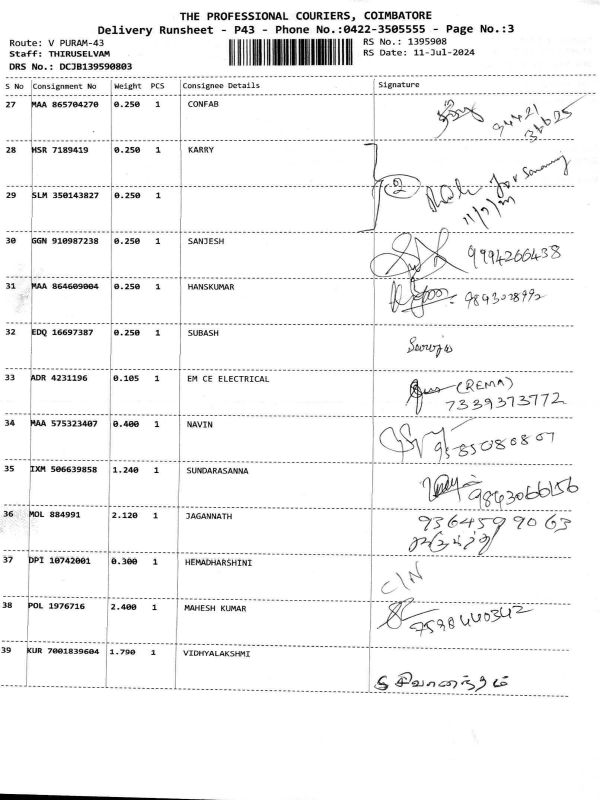 THE PROFESSIONAL COURIERS, COIMBATORE
Delivery Runsheet - P43 - Phone No.:0422-3505555 - Page No.:3
Route: V PURAM-43 RS No.: 1395908
Staff: THIRUSELVAM RS Date: 11-Jul-2024
DRS No.: DCJB139590803
S No Consignment No Weight PCS Consignee Details Signature
27 MAA 865704270 0.250 1 CONFAB
94421
36625
28 HSR 7189419 0.250 1 KARRY
2
29 SLM 350143827 0.250 1
11/7/24
30 GGN 910987238 0.250 1 SANJESH 9994266438
31 MAA 864609004 0.250 1 HANSKUMAR 9893028992
32 EDQ 16697387 0.250 1 SUBASH
33 ADR 4231196 0.105 1 EM CE ELECTRICAL (REMA)
7339373772
34 MAA 575323407 0.400 1 NAVIN 9585080807
35 IXM 506639858 1.240 1 SUNDARASANNA 9843066156
36 MOL 884991 2.120 1 JAGANNATH 9364599063
37 DPI 10742001 0.300 1 HEMADHARSHINI C/N
38 POL 1976716 2.400 1 MAHESH KUMAR 7598440342
39 KUR 7001839604 1.790 1 VIDHYALAKSHMI
சிவானந்தம்